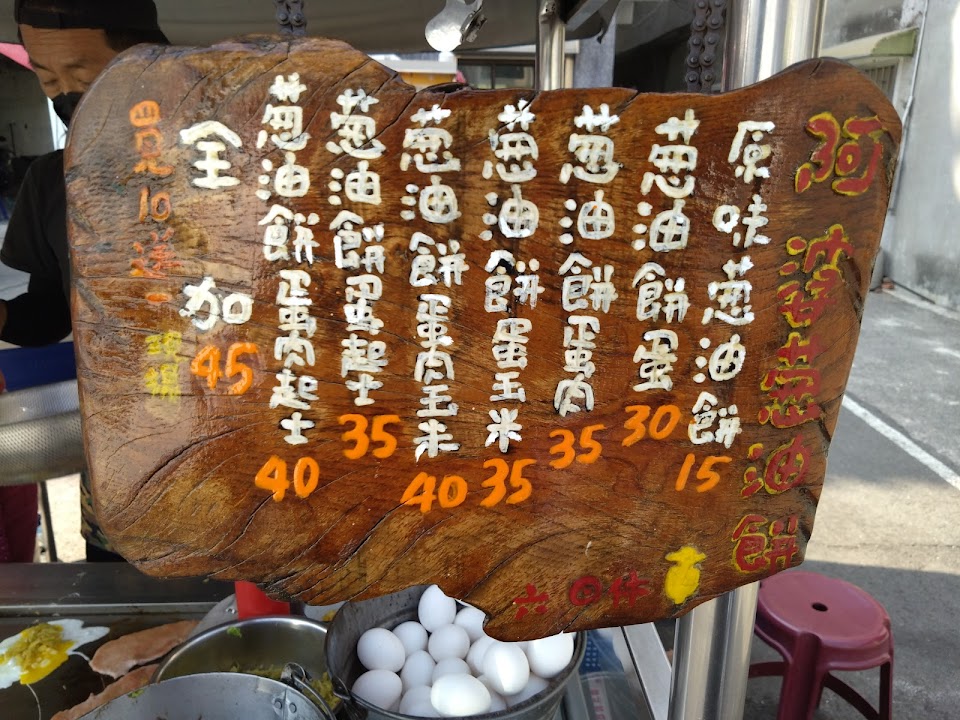 阿婆葱油餅
原味葱油餅 15
葱油餅蛋 30
葱油餅蛋肉 35
葱油餅蛋玉米 35
葱油餅蛋肉玉米 40
葱油餅蛋起士 35
葱油餅蛋肉起士 40
全加 45
買10送一
六日休